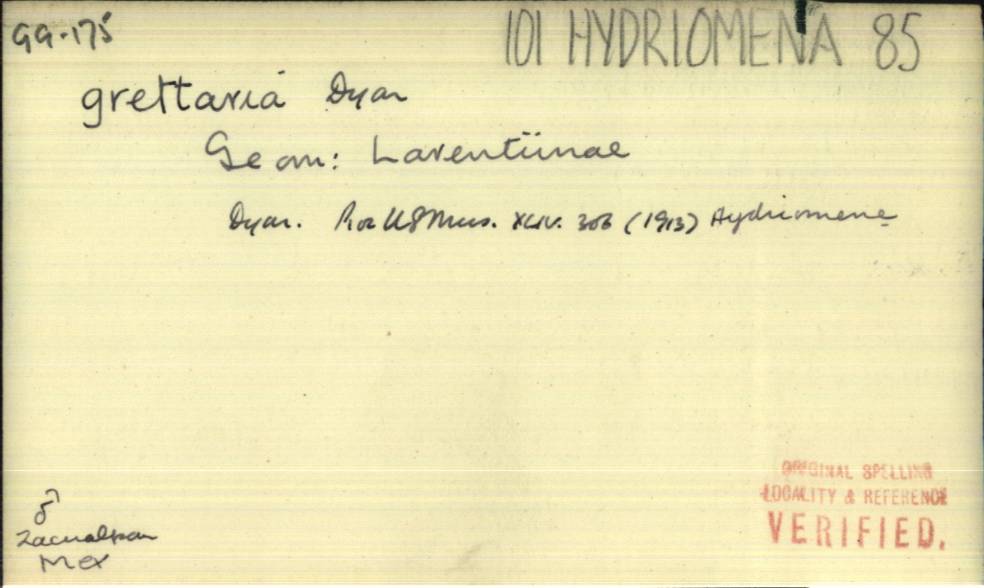 GG-175
101 HYDRIOMENA 85
grettaria Dyar
Geom: Larentiinae
Dyar. Proc US Mus. XLIV. 303 (1913) Hydriomene
♂
Zacualpan
Mex
ORIGINAL SPELLING
LOCALITY & REFERENCE
VERIFIED.